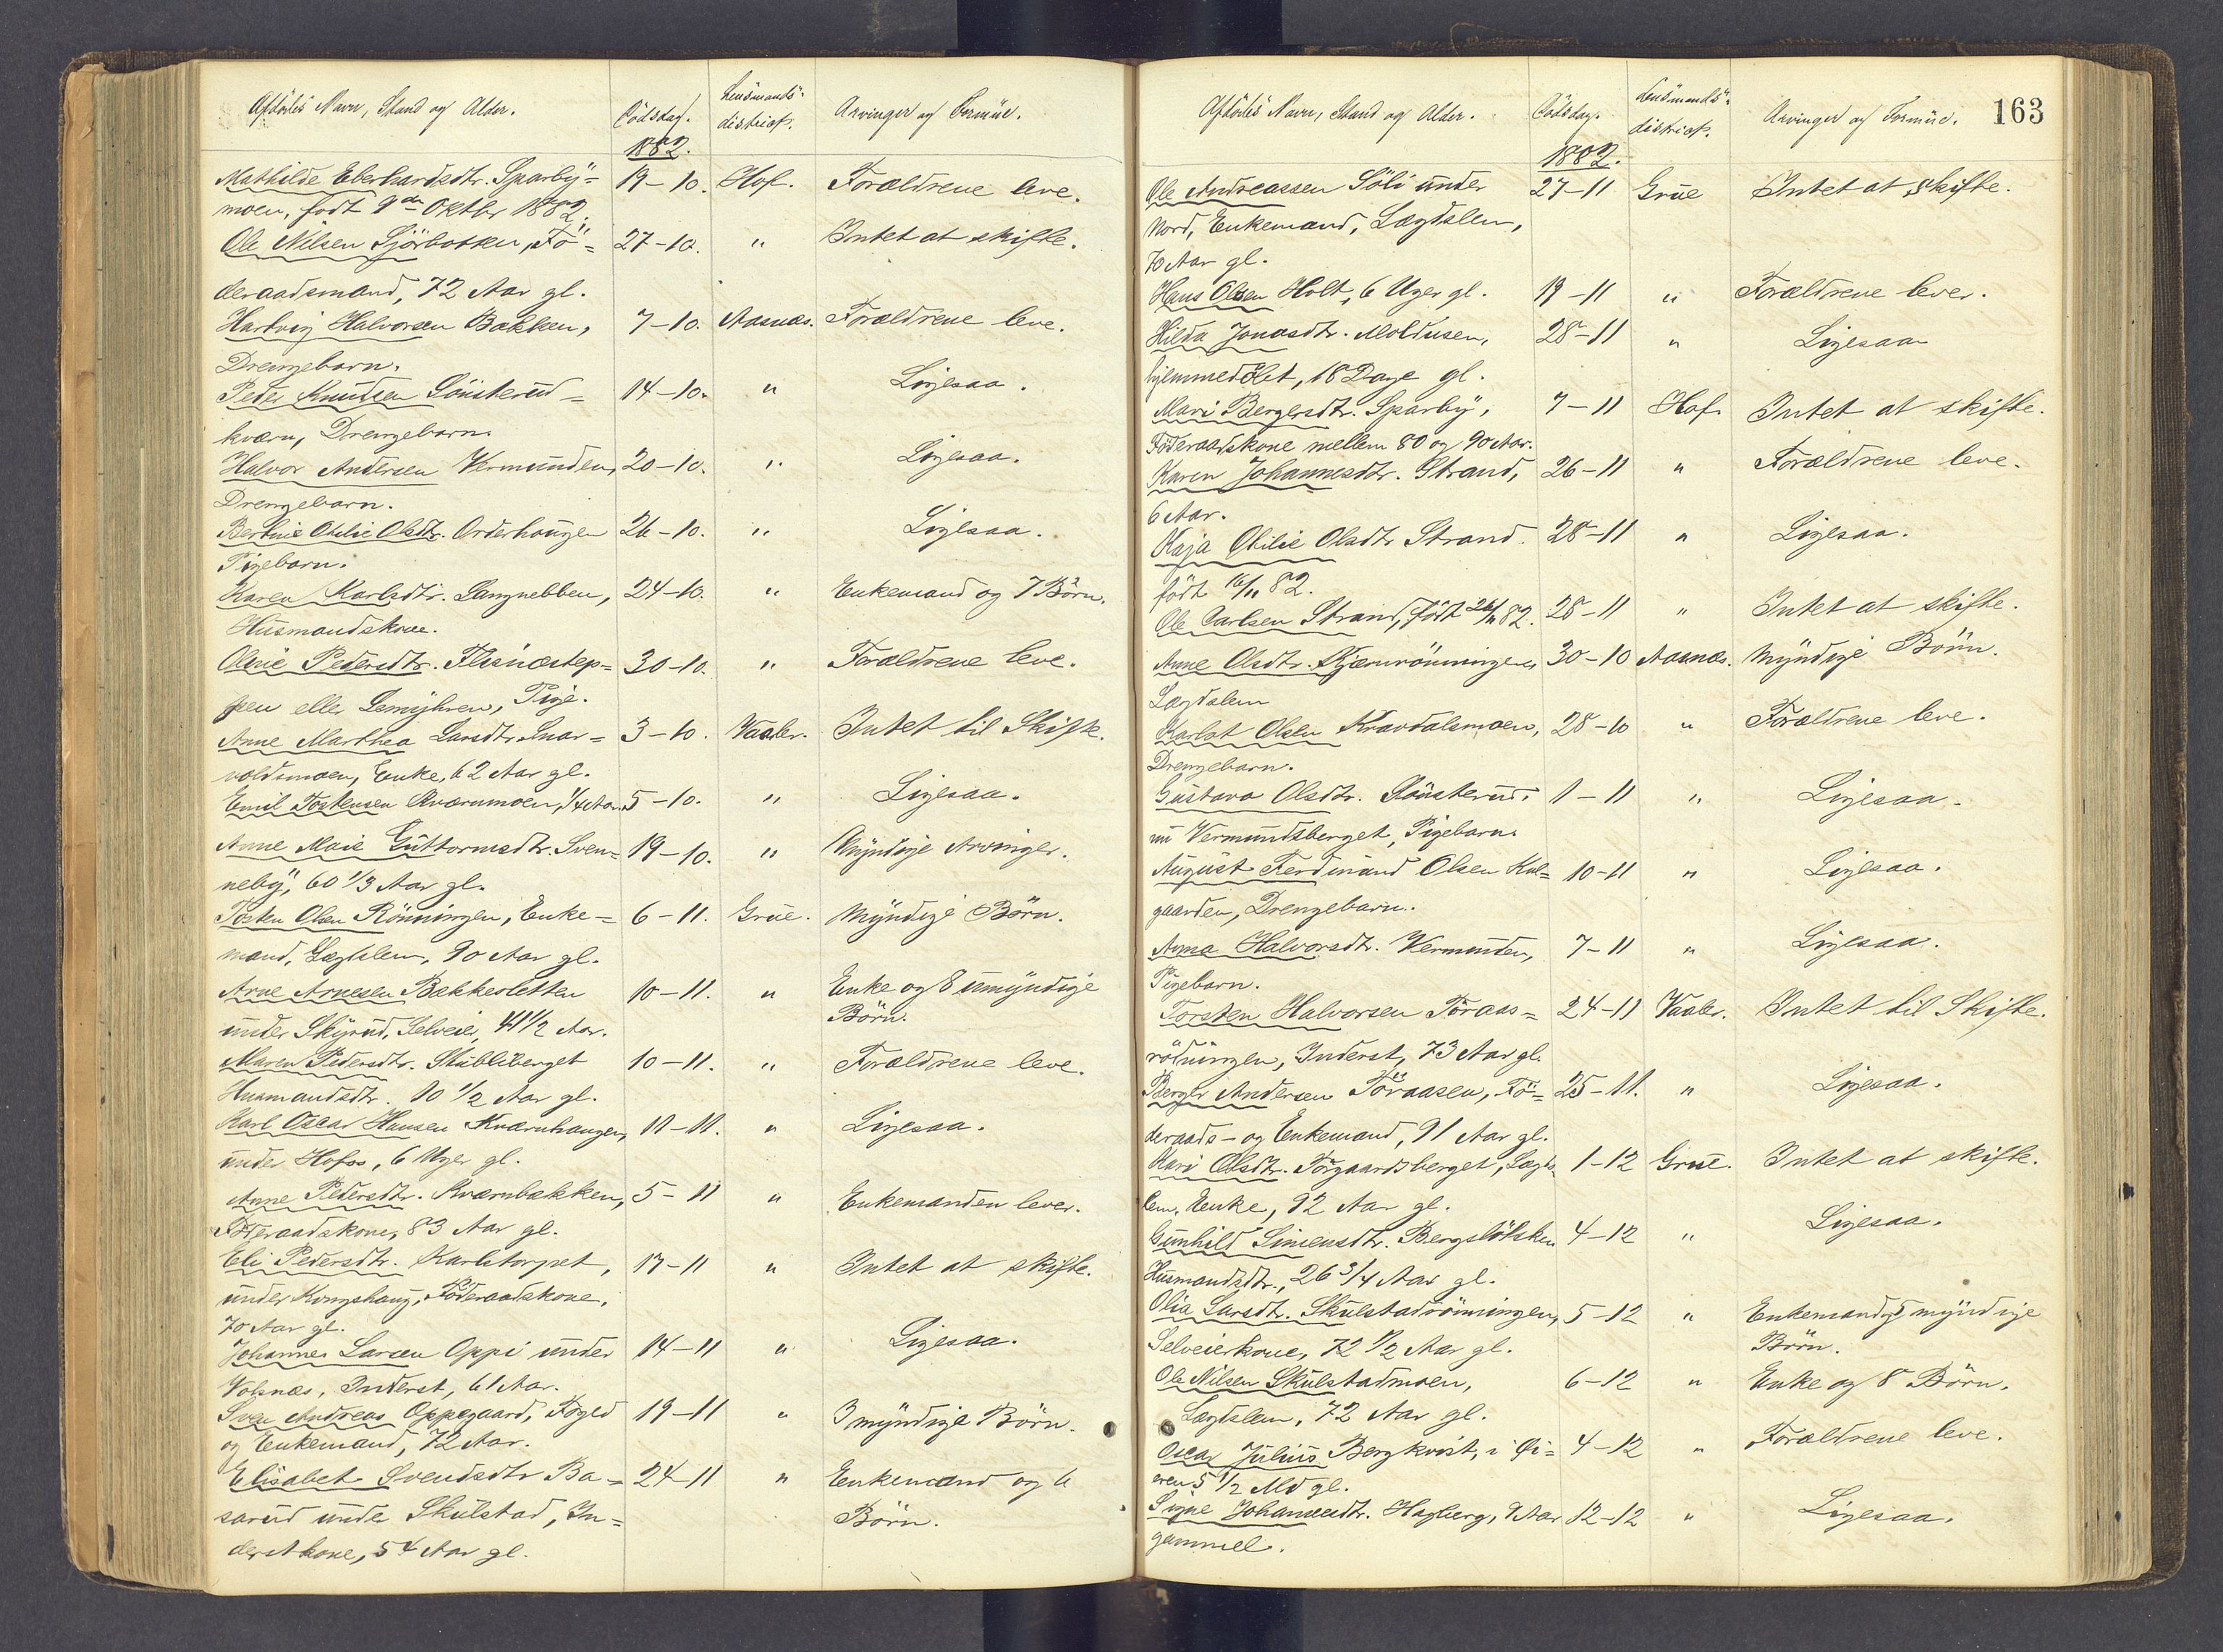 Afdødes Navn, Stand og Alder. Dödsdag. Lensmands- district. Arvinger og Formue.
1882.
Mathilde Eberhardsdtr. Sparby= 19-10. Hof. Forældrene leve.
moen, født 9de Oktbr 1882.
Ole Nilsen Sjörbotken, Fö= 27-10. " Intet at skifte.
deraadsmand, 72 Aar gl.
Hartvig Halvorsen Bakken, 7-10. Aasnæs. Forældrene leve.
Drengebarn.
Peder Knudsen Sönsterud= 14-10. " Ligesaa.
kværn, Drengebarn.
Halvor Andersen Vermunden, 20-10. " Ligesaa.
Drengebarn.
Bertine Otilie Olsdtr. Orderhougen 26-10. " Ligesaa.
Pigebarn.
Karen Karlsdtr. Langnebben, 24-10. " Enkemand og 7 Börn.
Husmandskone.
Oline Pedersdtr. Flisnæstep= 30-10. " Forældrene leve.
pen eller Lemyhren, Pige.
Anne Marthea Larsdtr. Snar= 3-10. Vaaler. Intet til Skifte.
voldsmoen, Enke, 62 Aar gl.
Emil Tostensen Kværnmoen, 1/4 Aar. 5-10. " Ligesaa.
Anne Marie Guttormsdtr. Sven= 19-10. " Myndige Arvinger.
neby, 60 1/3 Aar gl.
Tosten Olsen Rönningen, Enke= 6-11. Grue. Myndige Börn.
mand, Lægdslem, 90 Aar gl.
Arne Arnesen Bakkesletten 10-11. " Enke og 8 umyndige
under Skyrud, Selveier, 41 1/2 Aar. Börn.
Maren Pedersdtr. Stubliberget 10-11. " Forældrene leve.
Husmandsdtr. 10 1/2 Aar gl.
Karl Oscar Hansen Kværnhaugen, 11-11. " Ligesaa.
under Hofos, 6 Uger gl.
Anne Pedersdtr. Kværnbakken, 5-11 " Enkemanden lever.
Föderaadskone, 83 Aar gl.
Eli Pedersdtr. Karlstorpet, 17-11 " Intet at skifte.
under Kongshaug, Föderaadskone,
70 Aar gl.
Johannes Larsen Oppi under 14-11 " Ligesaa.
Volsnæs, Inderst, 61 Aar.
Sven Andreas Oppegaard, Foged 19-11 " 3 myndige Börn.
og Enkemand, 72 Aar.
Elisabet Svendsdtr Ba= 24-11 " Enkemand og 6
sarud under Skulstad, In= Börn.
derstkone, 54 Aar gl.
163
Afdødes Navn, Stand og Alder. Dödsdag. Lensmands- district. Arvinger og Formue.
1882.
Ole Andreassen Söli under 27-11 Grue Intet at skifte.
Nord, Enkemand, Lægdslem,
70 Aar gl.
Hans Olsen Holt, 6 Uger gl. 19-11 " Forældrene lever.
Hilda Jonasdtr. Moldusen, 28-11 " Ligesaa
hjemmedöbt, 18 Dage gl.
Mari Bergersdtr. Sparby, 7-11 Hof. Intet at skifte.
Föderaadskone mellem 80 og 90 Aar.
Karen Johannesdtr. Strand, 26-11 " Forældrene leve.
6 Aar.
Kaja Otilie Olsdtr Strand. 28-11 " Ligesaa.
födt 16/11 82.
Ole Carlsen Strand, födt 24/11 82. 28-11 " Intet at skifte.
Anne Olsdtr. Kjærnrönningen, 30-10 Aasnæs. Myndige Börn.
Lægdslem
Karlot Olsen Kravdalsmoen, 28-10 " Forældrene leve.
Drengebarn.
Gustava Olsdtr. Sönsterud, 1-11 " Ligesaa.
nu Vermundsberget, Pigebarn.
August Ferdinand Olsen Kul= 10-11 " Ligesaa.
gaarden, Drengebarn.
Anna Halvorsdtr. Vermunden, 7-11 " Ligesaa.
Pigebarn.
Torsten Halvorsen Toraas= 24-11 Vaaler. Intet til Skifte.
rödningen, Inderst, 73 Aar gl.
Berger Andersen Toraasen, Fö= 25-11. " Ligesaa.
deraads- og Enkemand, 91 Aar gl.
Kari Olsdtr. Torgaardsberget, Lægds 1-12 Grue. Intet at skifte.
lem, Enke, 92 Aar gl.
Gunhild Simensdtr. Bergslökken 4-12 " Ligesaa.
Husmandsdtr., 26 3/4 Aar gl.
Olia Larsdtr. Skulstadrönningen, 5-12 " Enkemand og myndige
Selveierkone, 72 1/2 Aar gl. Börn.
Ole Nilsen Skulstadmoen, 6-12 " Enke og 8 Börn.
Lægdslem, 72 Aar gl.
Oscar Julius Bergkvist, i Öi= 4-12 " Forældrene leve.
eren 5 1/2 Md gl.
Signe Johannesdtr. Hagberg, 9 Aar 12-12 " Ligesaa.
gammel.